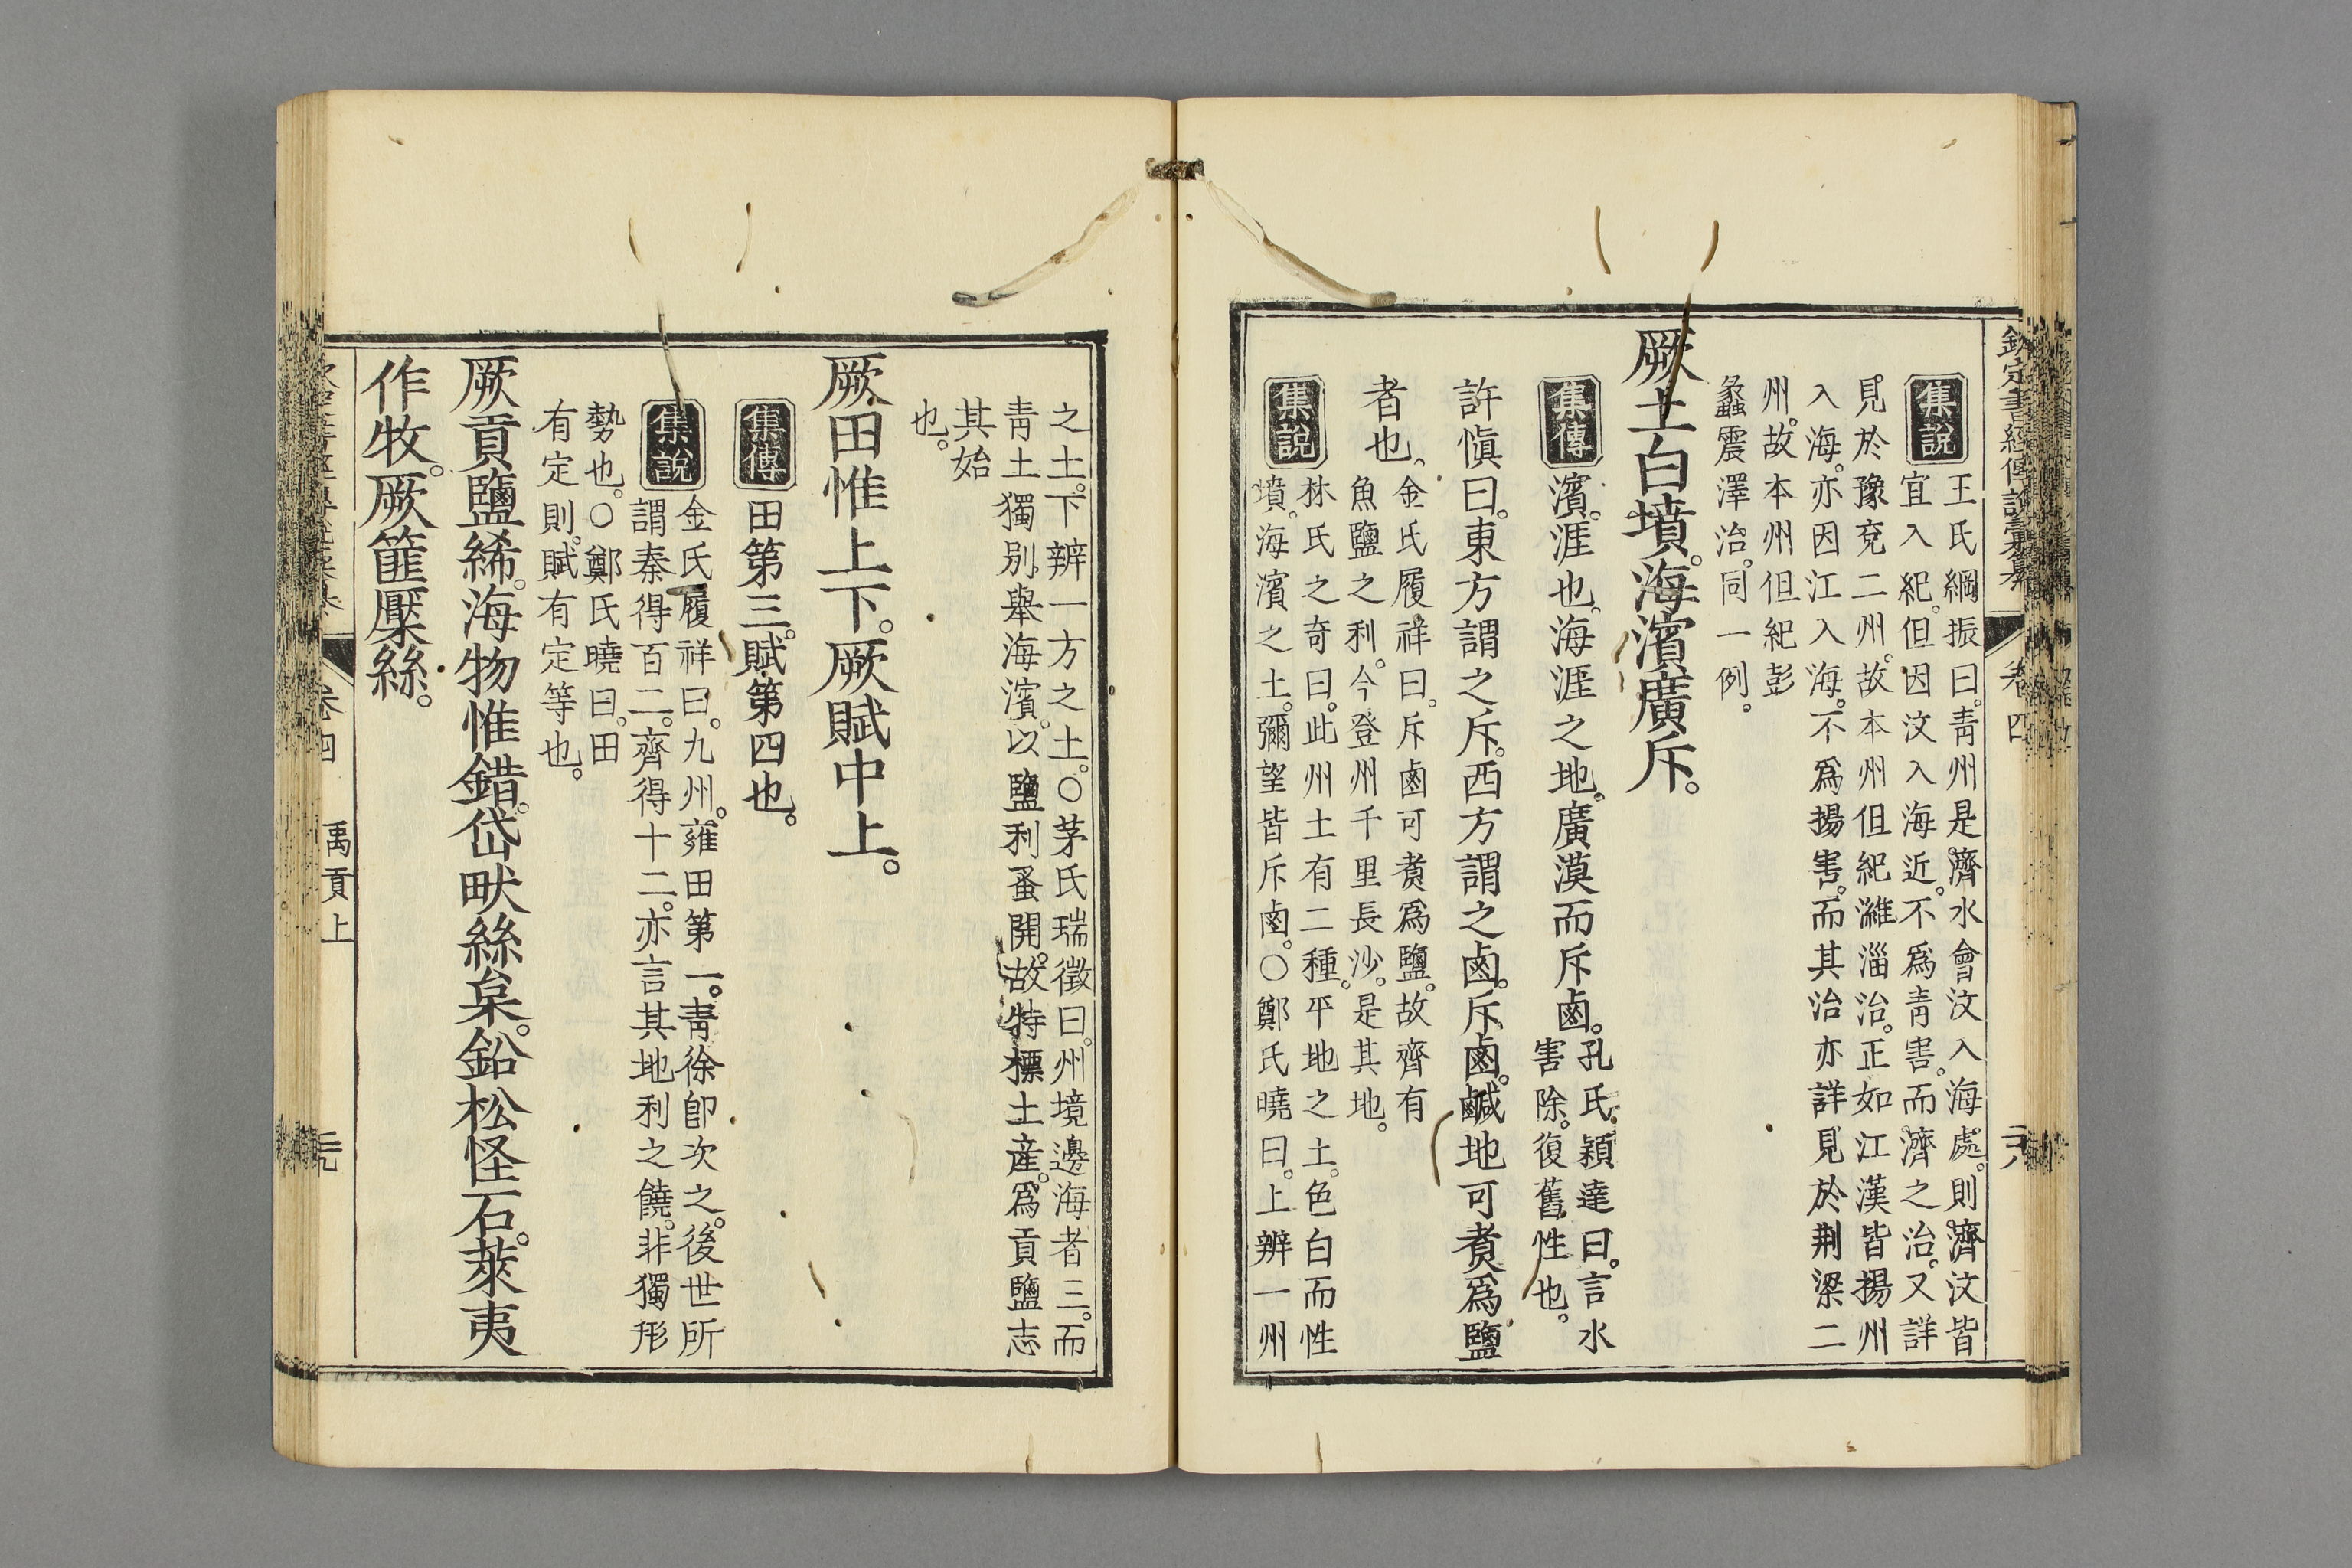 欽定書經傳說彙纂 卷四
集說
王氏綱振曰。靑州是濟水會汶入海處。則濟汶皆
宜入紀。但因汶入海近。不爲靑害。而濟之治。又詳
見於豫兗二州。故本州但紀濰淄治。正如江漢皆揚州
入海。亦因江入海。不爲揚害。而其治亦詳見於荆梁二
州。故本州但紀彭
蠡震澤治。同一例。
厥土白墳。海濱廣斥。
集傳
濱。涯也。海涯之地。廣漠而斥鹵。
孔氏穎達曰。言水
害除。復舊性也。
許愼曰。東方謂之斥。西方謂之鹵。斥鹵。鹹地可煑爲鹽
者也。
金氏履祥曰。斥鹵可煑爲鹽。故齊有
魚鹽之利。今登州千里長沙。是其地。
集說
林氏之奇曰。此州土有二種。平地之土。色白而性
墳。海濱之土。彌望皆斥鹵。○鄭氏曉曰。上辨一州
之土。下辨一方之土。○茅氏瑞徵曰。州境邊海者三。而
靑土獨別。舉海濱。以鹽利蚤開。故特標土産。爲貢鹽志
其始
也。
厥田惟上下。厥賦中上。
集傳
田第三。賦第四也。
集說
金氏履祥曰。九州。雍田第一。靑徐卽次之。後世所
謂秦得百二。齊得十二。亦言其地利之饒。非獨形
勢也。○鄭氏曉曰。田
有定則。賦有定等也。
厥貢鹽絺。海物惟錯。岱畎絲枲。鉛松怪石。萊夷
作牧。厥篚檿絲。
卷四 禹貢上